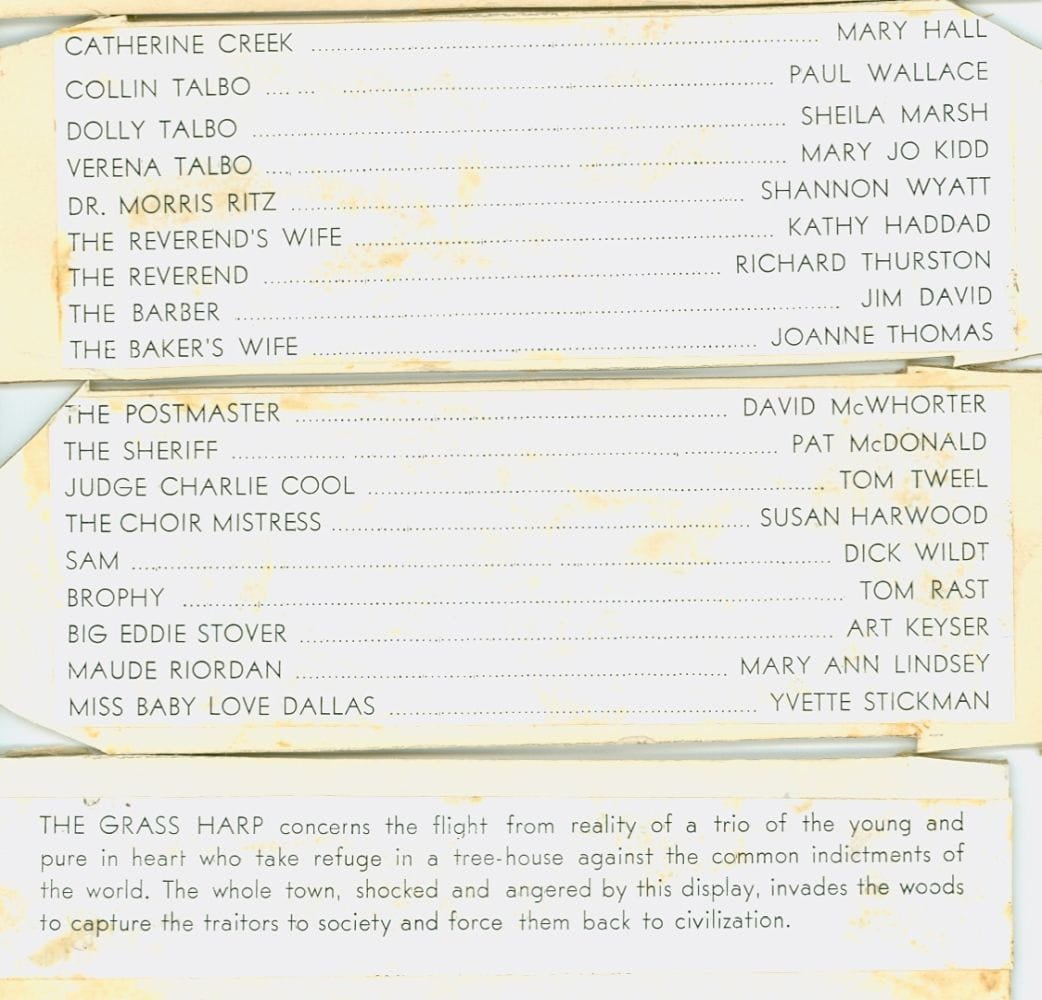 CATHERINE CREEK ........................ MARY HALL
COLLIN TALBO .... ... ........................ PAUL WALLACE
DOLLY TALBO ........................ SHEILA MARSH
VERENA TALBO ........................ MARY JO KIDD
DR. MORRIS RITZ ........................ SHANNON WYATT
THE REVEREND'S WIFE ........................ KATHY HADDAD
THE REVEREND ........................ RICHARD THURSTON
THE BARBER ........................ JIM DAVID
THE BAKER'S WIFE ........................ JOANNE THOMAS
THE POSTMASTER ........................ DAVID McWHORTER
THE SHERIFF ........................ PAT McDONALD
JUDGE CHARLIE COOL ........................ TOM TWEEL
THE CHOIR MISTRESS ........................ SUSAN HARWOOD
SAM ........................ DICK WILDT
BROPHY ........................ TOM RAST
BIG EDDIE STOVER ........................ ART KEYSER
MAUDE RIORDAN ........................ MARY ANN LINDSEY
MISS BABY LOVE DALLAS ........................ YVETTE STICKMAN
THE GRASS HARP concerns the flight from reality of a trio of the young and
pure in heart who take refuge in a tree-house against the common indictments of
the world. The whole town, shocked and angered by this display, invades the woods
to capture the traitors to society and force them back to civilization.